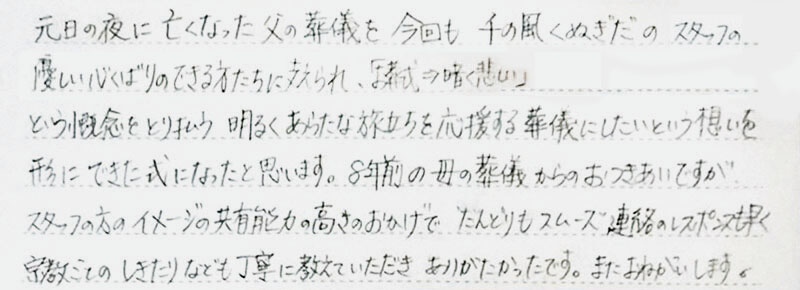 元日の夜に亡くなった父の葬儀を今回も千の風くぬぎだのスタッフの
優しい心くばりのできる方たちに支えられ、「葬式⇒暗く悲しい」
という概念をとり払う明るくあらたな旅立ちを応援する葬儀にしたいという想いを
形にできた式になったと思います。8年前の母の葬儀からのおつきあいですが
スタッフの方のイメージの共有能力の高さのおかげでだんどりもスムーズ連絡のレスポンスも早く
宗教ごとのしきたりなども丁寧に教えていただきありがたかったです。またおねがいします。